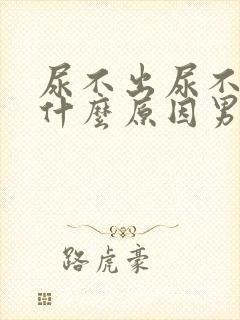 尿不出尿不
什麼原因男
路虎豪